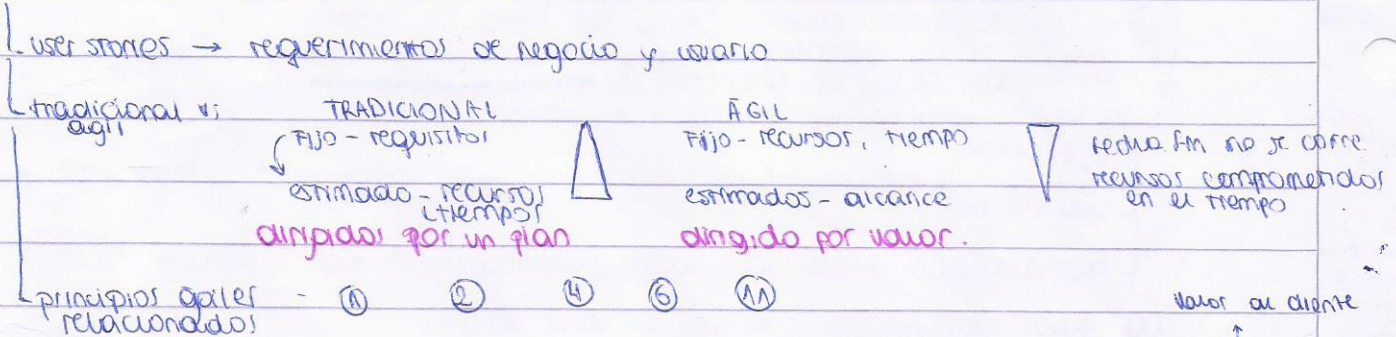 user stories → requerimientos de negocio y usuario
tradicional vs ágil
TRADICIONAL
Fijo - requisitos
estimado - recursos
y tiempos
dirigidos por un plan
ÁGIL
Fijo - recursos, tiempo
estimados - alcance
dirigido por valor.
fecha fin no se corre
recursos comprometidos
en el tiempo
principios ágiles relacionados - ① ② ④ ⑥ ⑪
valor al cliente
↑